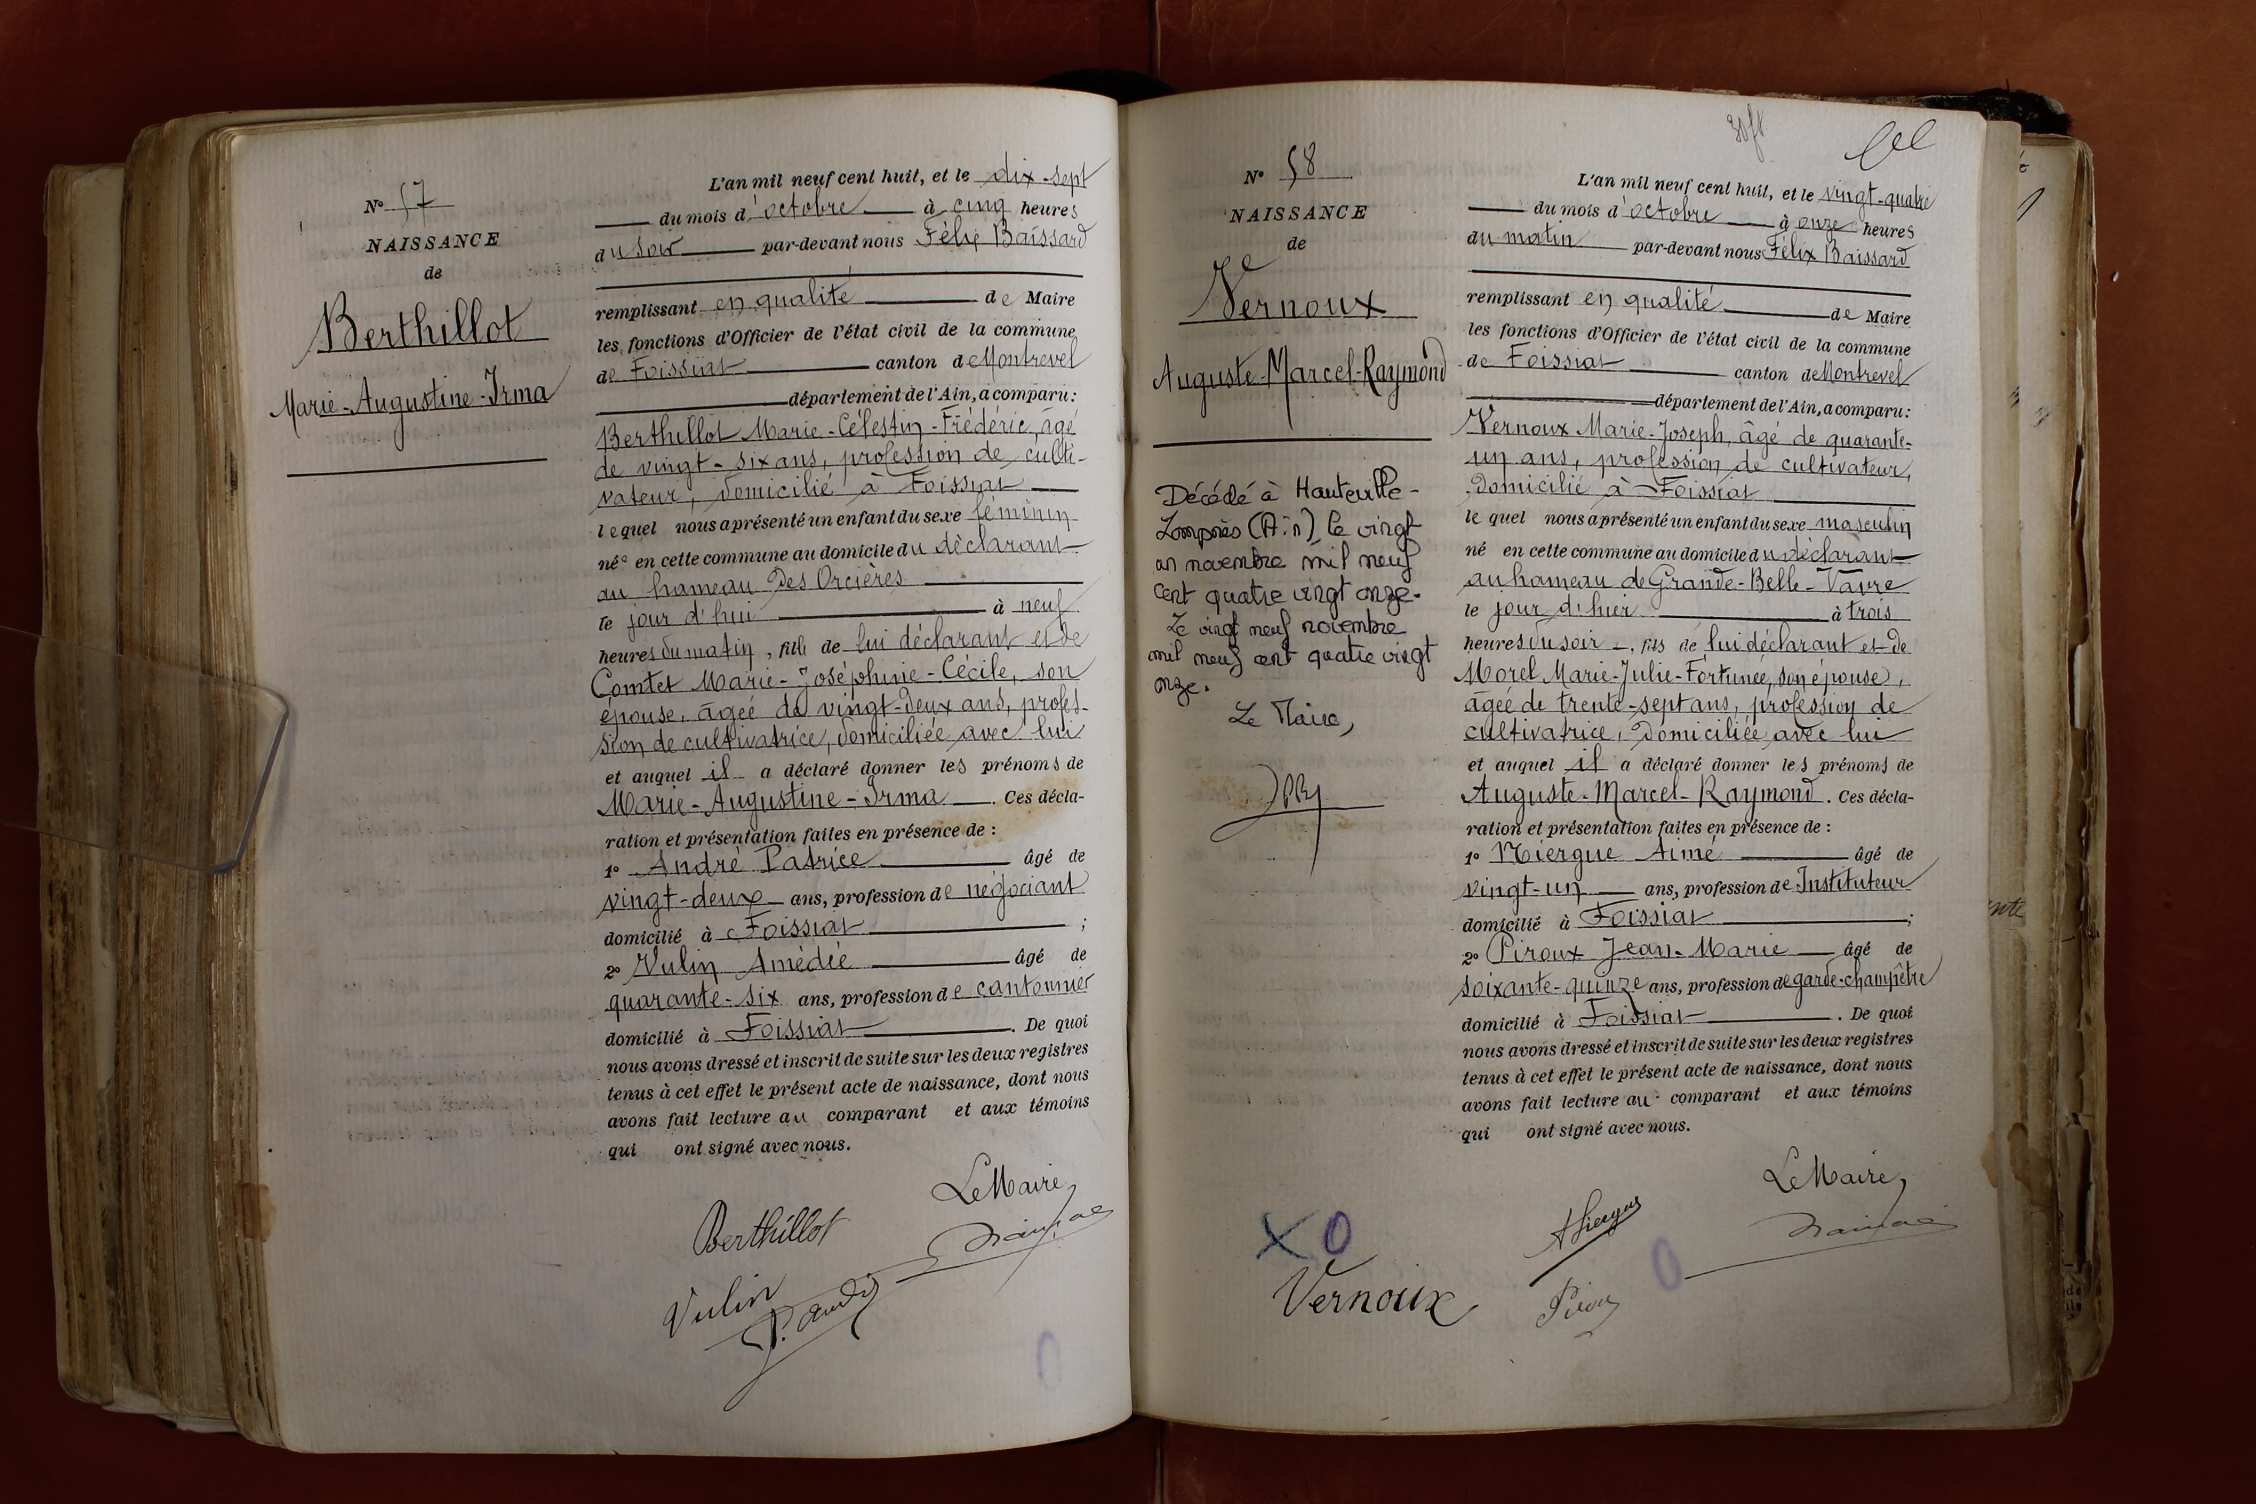 N° 57
NAISSANCE
de
Berthillot
Marie-Augustine-Irma
L'an mil neuf cent huit, et le dix-sept
du mois d'octobre à cinq heures
du soir par-devant nous Félix Baissard
remplissant en qualité de Maire
les fonctions d'Officier de l'état civil de la commune
de Foissiat canton de Montrevel
département de l'Ain, a comparu :
Berthillot Marie-Célestin-Frédéric, âgé
de vingt-six ans, profession de culti-
vateur, domicilié à Foissiat
lequel nous a présenté un enfant du sexe féminin
née en cette commune au domicile du déclarant
au hameau des Orcières
le jour d'hui à neuf
heures du matin, fille de lui déclarant et de
Comtet Marie-Joséphine-Cécile, son
épouse, âgée de vingt-deux ans, profes-
sion de cultivatrice, domiciliée avec lui
et auquel il a déclaré donner les prénoms de
Marie-Augustine-Irma. Ces décla-
ration et présentation faites en présence de :
1° André Patrice âgé de
vingt-deux ans, profession de négociant
domicilié à Foissiat ;
2° Vulin Amédée âgé de
quarante-six ans, profession de cantonnier
domicilié à Foissiat. De quoi
nous avons dressé et inscrit de suite sur les deux registres
tenus à cet effet le présent acte de naissance, dont nous
avons fait lecture au comparant et aux témoins
qui ont signé avec nous.
Le Maire,
Berthillot
Vulin
P. André
N° 58
NAISSANCE
de
Vernoux
Auguste-Marcel-Raymond
Décédé à Hauteville-
Lompnès (Ain) le vingt
un novembre mil neuf
cent quatre vingt onze.
Le vingt neuf novembre
mil neuf cent quatre vingt
onze.
Le Maire,
L'an mil neuf cent huit, et le vingt-quatre
du mois d'octobre à onze heures
du matin par-devant nous Félix Baissard
remplissant en qualité de Maire
les fonctions d'Officier de l'état civil de la commune
de Foissiat canton de Montrevel
département de l'Ain, a comparu :
Vernoux Marie-Joseph, âgé de quarante-
un ans, profession de cultivateur,
domicilié à Foissiat
lequel nous a présenté un enfant du sexe masculin
né en cette commune au domicile du déclarant
au hameau de Grande-Belle-Vavre
le jour d'hier à trois
heures du soir, fils de lui déclarant et de
Morel Marie-Julie-Fortunée, son épouse,
âgée de trente-sept ans, profession de
cultivatrice, domiciliée avec lui
et auquel il a déclaré donner les prénoms de
Auguste-Marcel-Raymond. Ces décla-
ration et présentation faites en présence de :
1° Miergue Aimé âgé de
vingt-un ans, profession de Instituteur
domicilié à Foissiat ;
2° Piroux Jean-Marie âgé de
soixante-quinze ans, profession de garde-champêtre
domicilié à Foissiat. De quoi
nous avons dressé et inscrit de suite sur les deux registres
tenus à cet effet le présent acte de naissance, dont nous
avons fait lecture au comparant et aux témoins
qui ont signé avec nous.
Le Maire,
X O
Vernoux